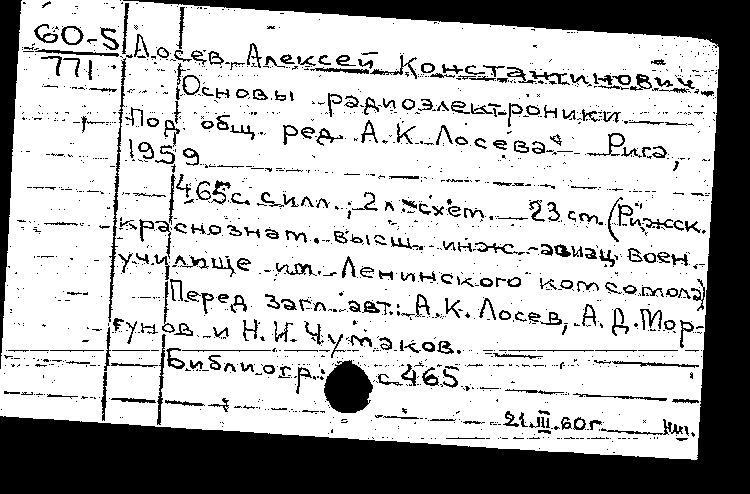 60-5
771
Лосев Алексей Константинович
Основы радиоэлектроники
Под общ. ред. А.К. Лосева Рига,
1959
465 с. с илл.; 2 л. схем. 23 см. (Рижск.
краснознам. высш. инж.-авиац. воен.
училище им. Ленинского комсомола)
Перед загл. авт.: А.К. Лосев, А.Д. Мор-
гунов и Н.И. Чумаков.
Библиогр.: с. 465.
21.III.60г.